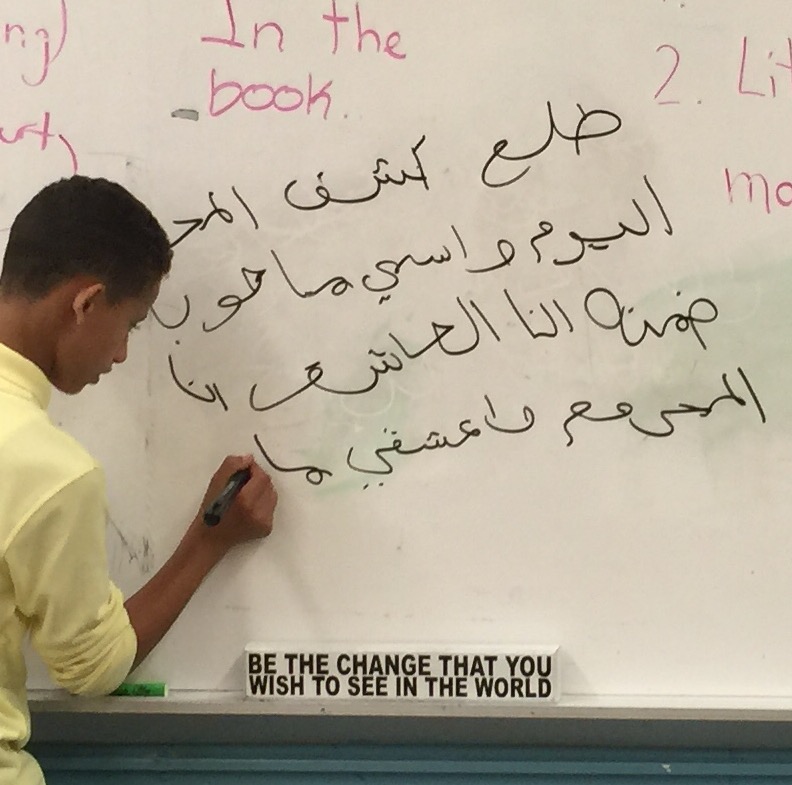 In the
book.
2. Lit
mo
طلع كشف المحـ
اليوم واسمي ما حوب
ضمنه النا العاشق انا
المحروم واعشقي ما
BE THE CHANGE THAT YOU
WISH TO SEE IN THE WORLD